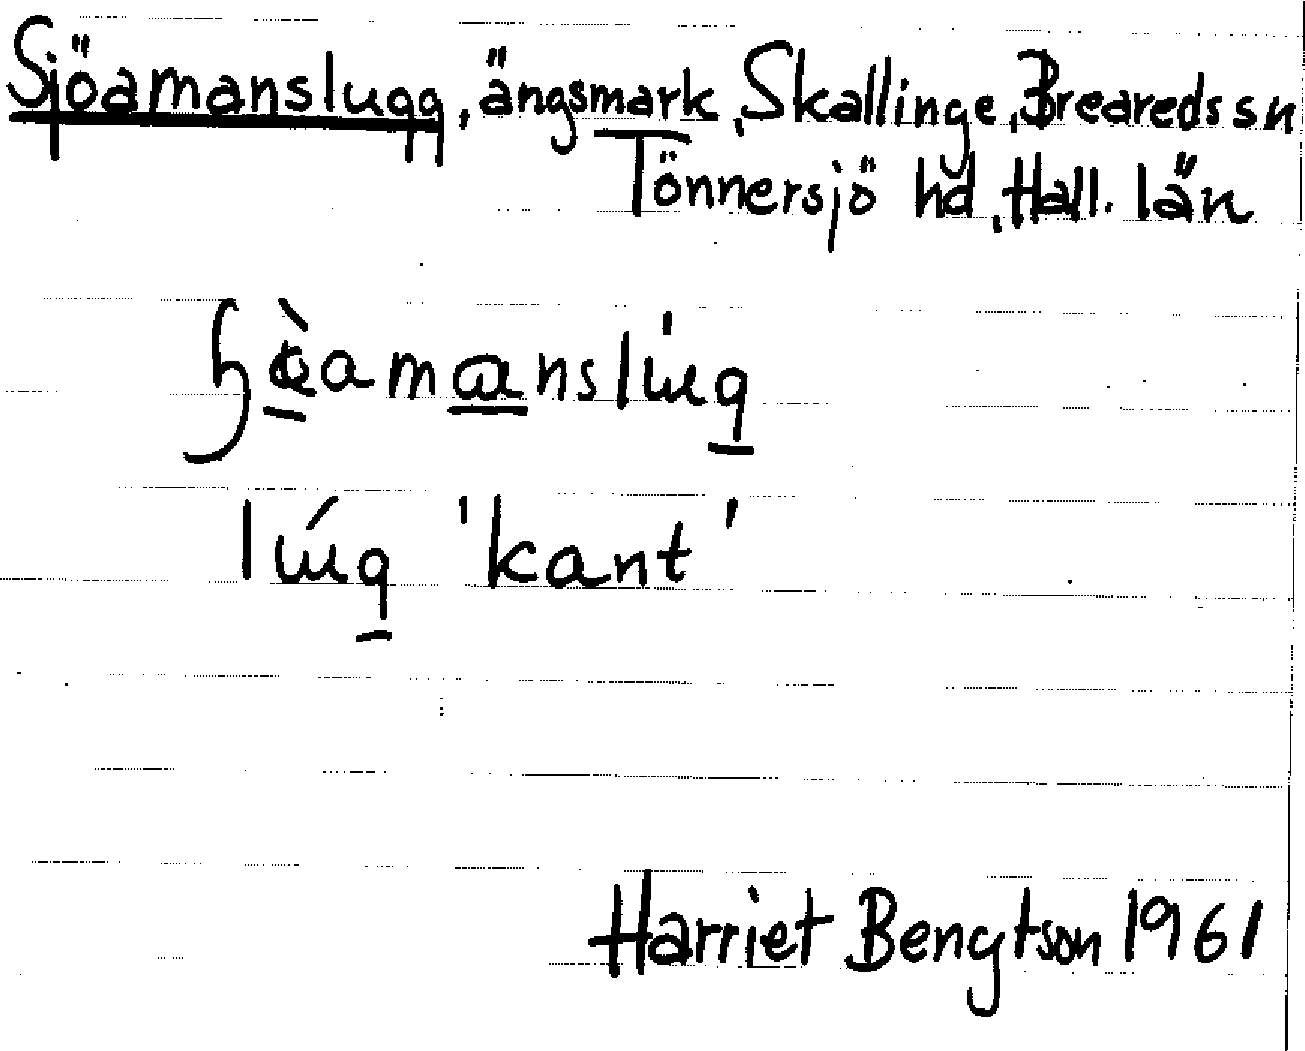 Sjöamanslugg, ängsmark, Skallinge, Breareds sn
Tönnersjö hd, Hall. län
'kant'
Harriet Bengtson 1961